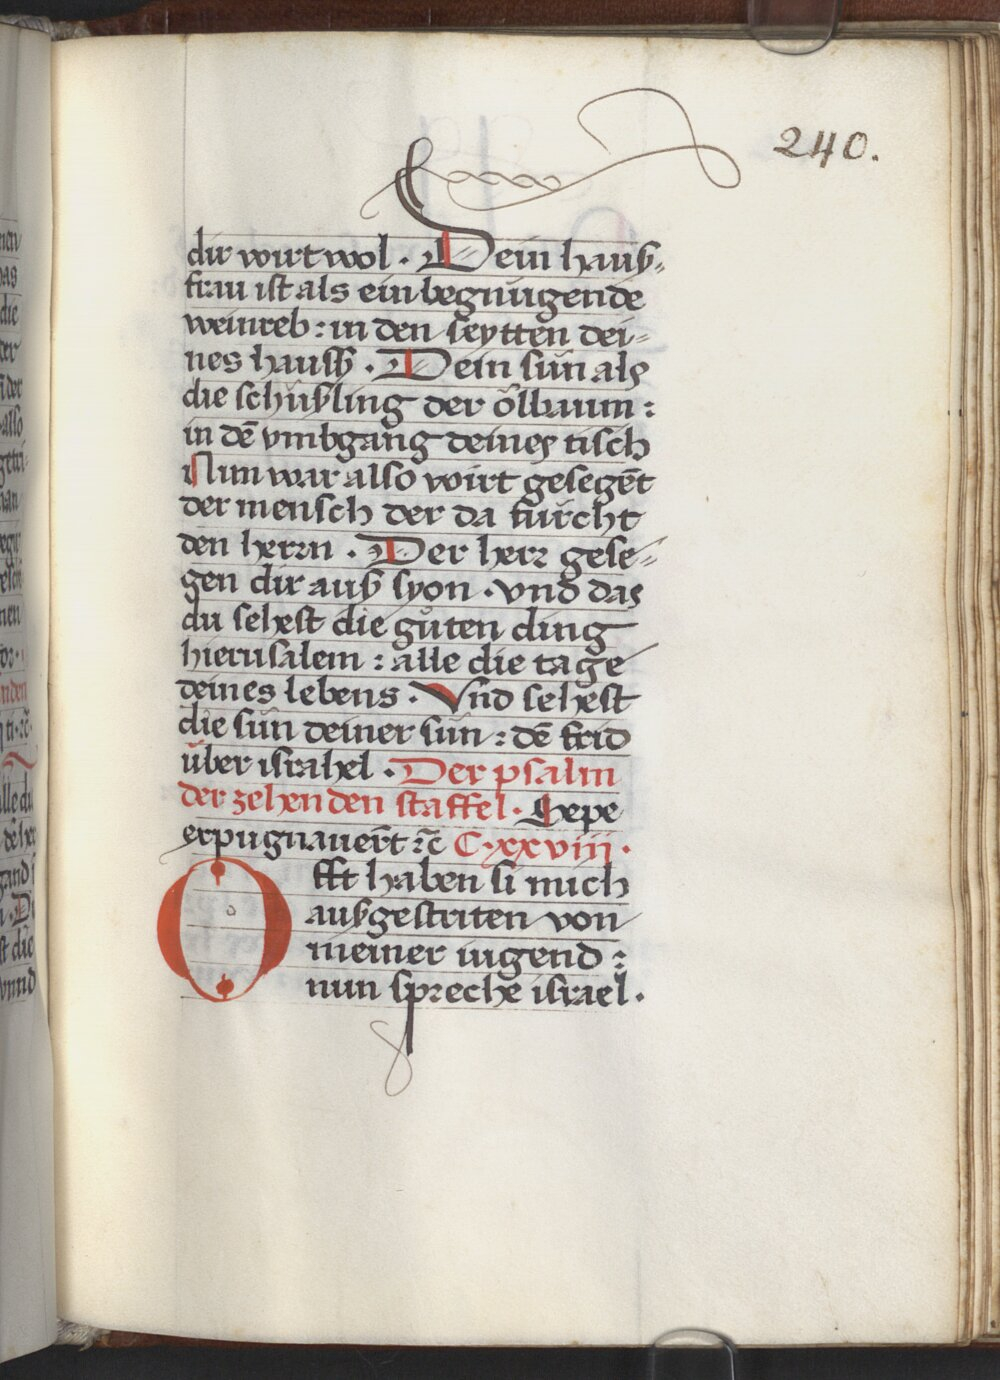 240.
dir wirt wol . Dein hauß-
frau ist als ein begnügende
weinreb : in den seytten dei-
nes hauss . Dein sün als
die schüßling der ölbaum :
in dē vmbgang deines tisch
Nim war also wirt gesegēt
der mensch der da fürcht
den herrn . Der herr gese-
gen dir auß syon . vnd das
du sehest die gůten ding
hierusalem : alle die tage
deines lebens . Vnd sehest
die sün deiner sün : dē frid
über israhel . Der psalm
der zehenden staffel . Sepe
expugnauerūt ꝛc̄ C·xxviii ·
Offt haben si mich
außgestriten von
meiner iugend :
nun spreche israel .